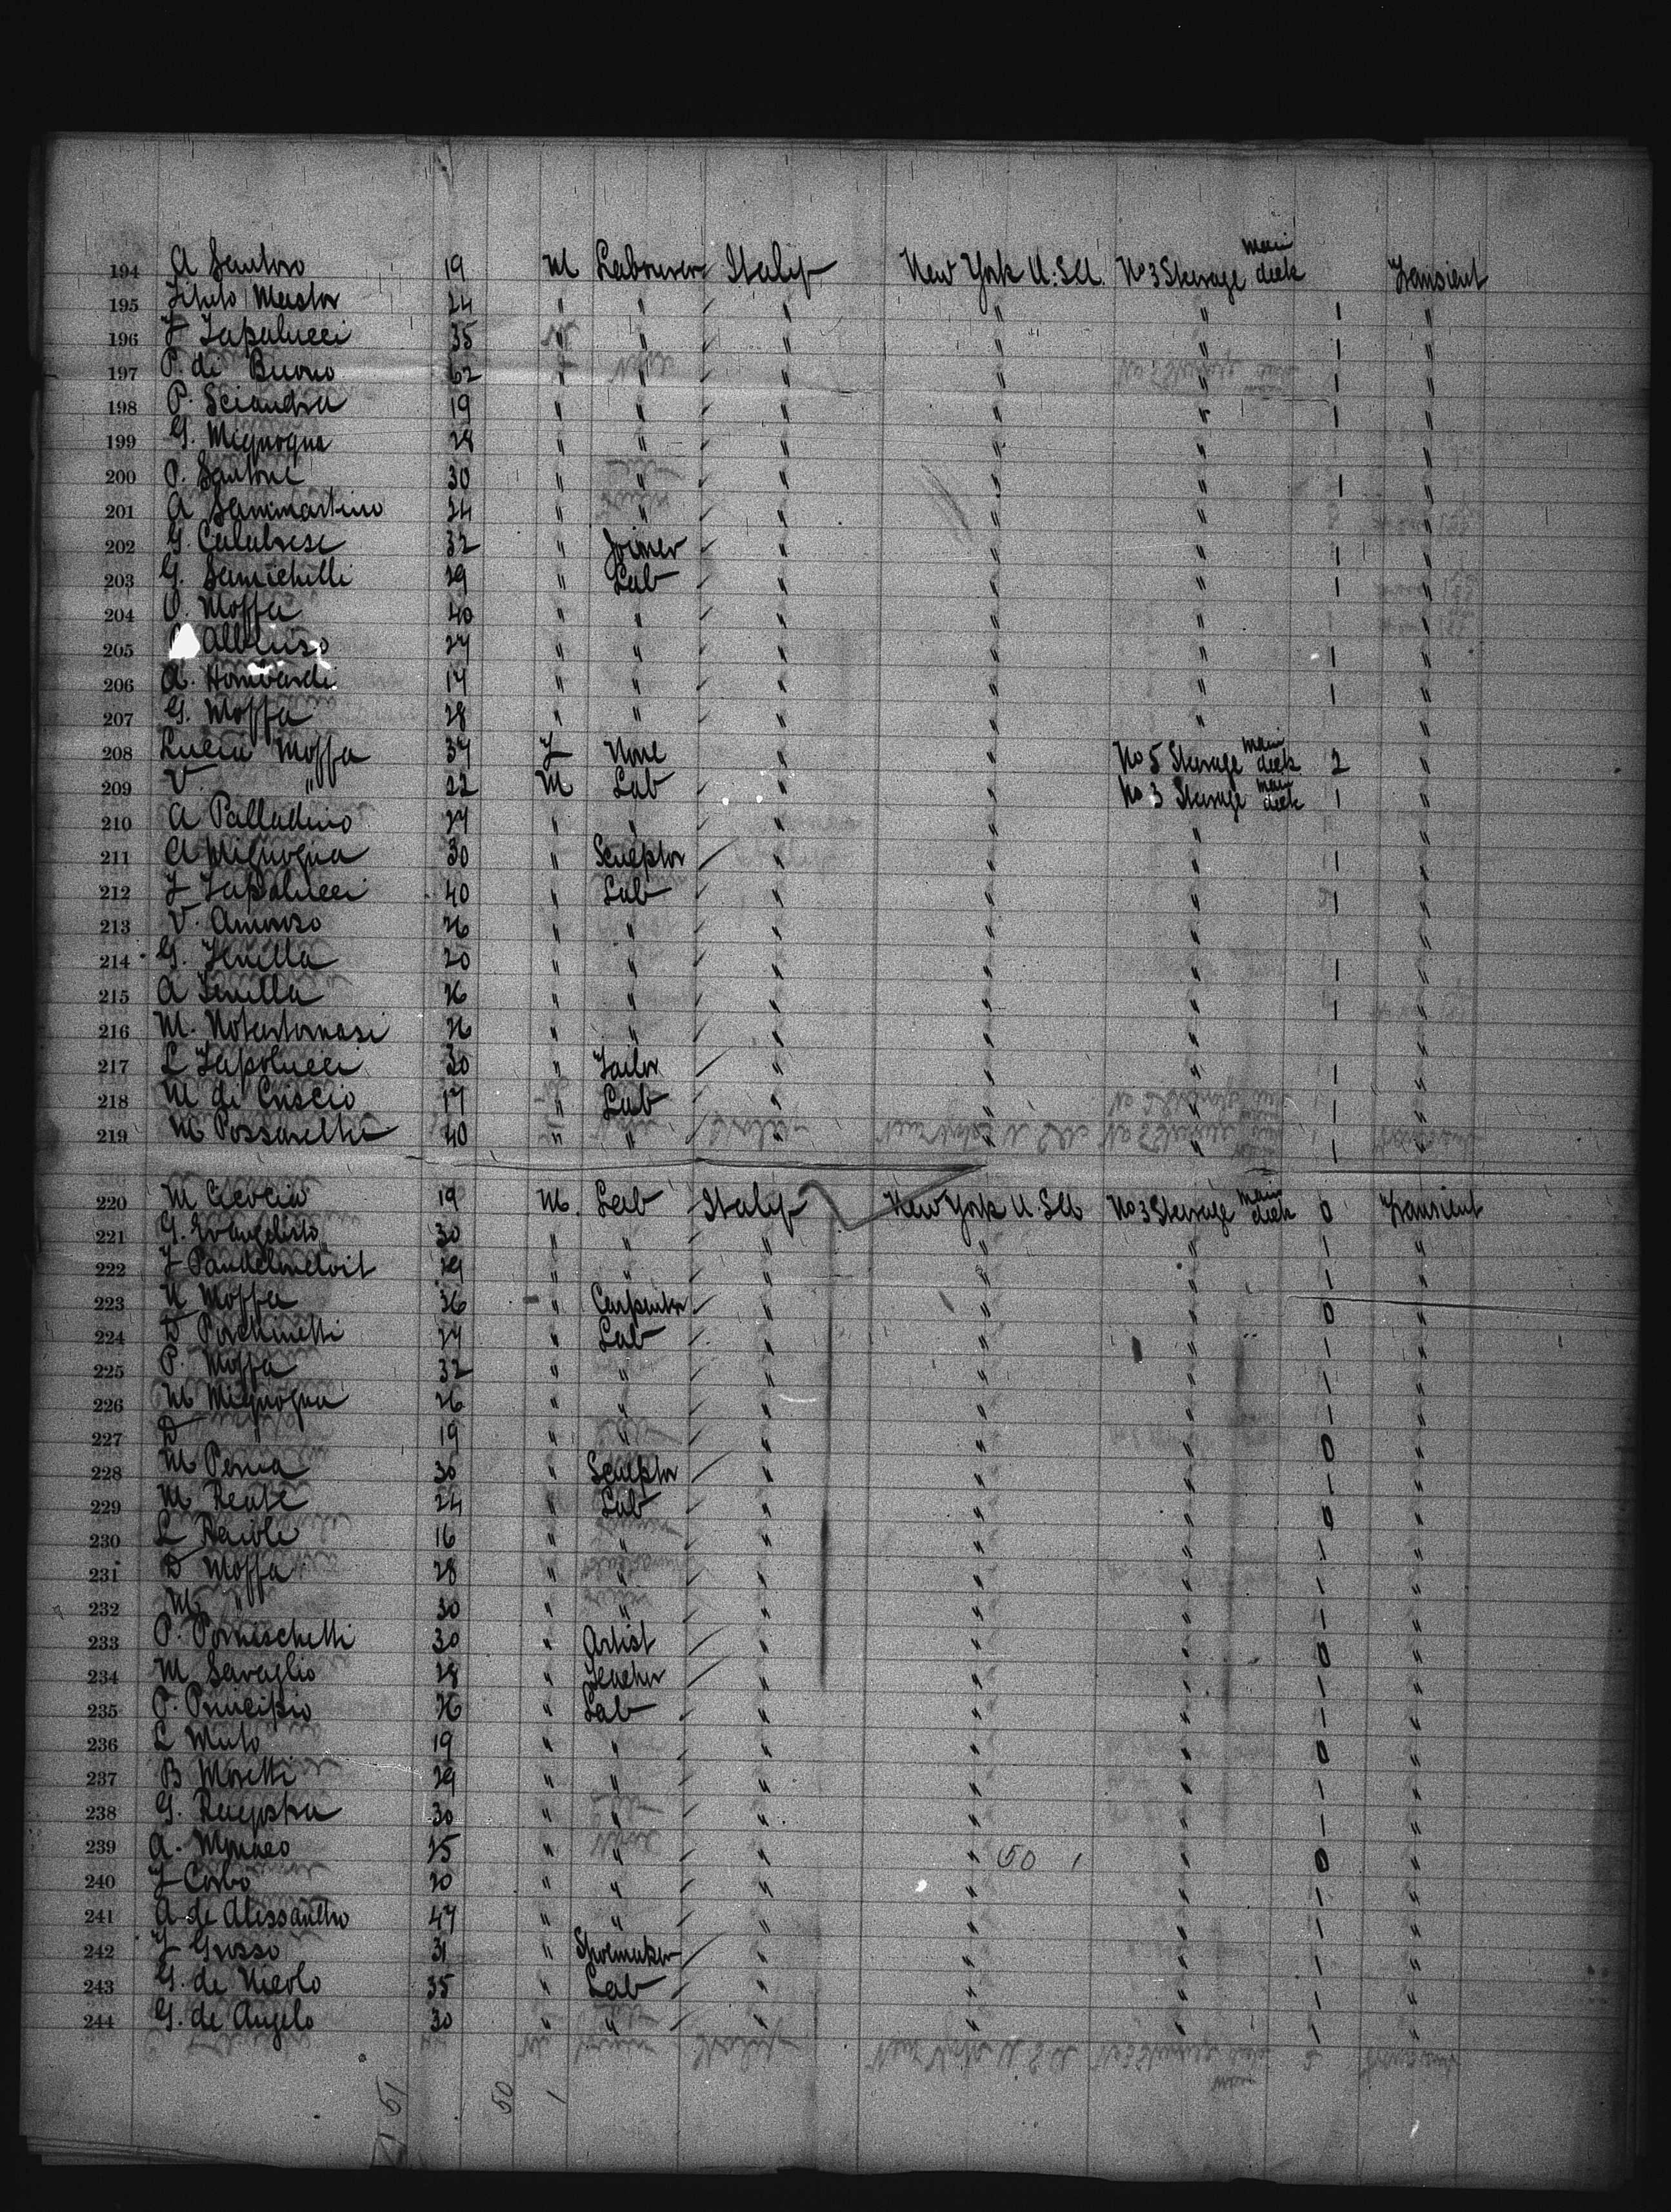 194 A Santoro 19 M Labourer Italy New York U.S.A. No 3 Steerage main deck Transient
195 Master 24 " " " " " 1 "
196 F Iapalucci 35 " " " " " 1 "
197 P. di Buono 62 " " " " " 1 "
198 P. Sciandra 19 " " " " " 1 "
199 G. Mignogna 28 " " " " " "
200 P. Santone 30 " " " " " 1 "
201 A Sammartino 24 " " " " " "
202 G. Calabrese 32 " Joiner " " " 1 "
203 G. 29 " Lab " " " 1 "
204 Moffa 40 " " " " " "
205 27 " " " " " 1 "
206 A. Lombardi 17 " " " " " 1 "
207 G. Moffa 28 " " " " " "
208 Lucia Moffa 37 F None " " No 5 Steerage main deck 2 "
209 V. " 22 M Lab " " No 3 Steerage main deck 1 "
210 A Palladino 27 " " " " " "
211 A Mignogna 30 " Sculptor " " " 1 "
212 F Iapalucci 40 " Lab " " " 1 "
213 V. Amoroso 26 " " " " " "
214 G. 20 " " " " " 1 "
215 A 26 " " " " " 1 "
216 M. Notartomasi 26 " " " " " "
217 L Iapolucci 30 " Tailor " " " 1 "
218 M di Criscio 17 " Lab " " " 1 "
219 M 40 " " " " " 1 "
220 M 19 M. Lab Italy New York U.S.A No 3 Steerage main deck 0 Transient
221 G. Evangelisto 30 " " " " " 1 "
222 F 29 " " " " " 1 "
223 N Moffa 36 " Carpenter " " " 0 "
224 D 27 " Lab " " " 1 "
225 P. Moffa 32 " " " " " 1 "
226 M Mignogna 26 " " " " " 1 "
227 D " 19 " " " " " 0 "
228 M Perna 30 " Sculptor " " " 1 "
229 M Reale 24 " Lab " " " 0 "
230 L 16 " " " " " 1 "
231 D Moffa 28 " " " " " 1 "
232 M " 30 " " " " " 1 "
233 P. 30 " Artist " " " 0 "
234 M Savaglio 28 " Teacher " " " 1 "
235 P. Principio 26 " Lab " " " 1 "
236 L Muto 19 " " " " " 0 "
237 B Moretti 29 " " " " " 1 "
238 G. 30 " " " " " 1 "
239 A. Monaco 25 " " " " 50 1 " 0 "
240 F Corbo 20 " " " " " 1 "
241 A de Alessandro 47 " " " " " 1 "
242 F Grosso 31 " Shoemaker " " " 1 "
243 G. de Nicolo 35 " Lab " " " 1 "
244 G. de Angelo 30 " " " " " 1 "
51 50 1